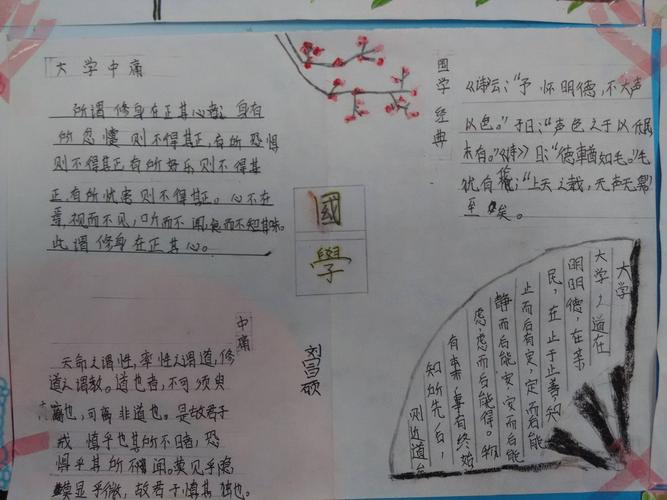 大学中痛
所谓修身在正其心者：身有
所忿懥则不得其正，有所恐惧
则不得其正有所好乐则不得其
正，有所忧患则不得其正。心不在
焉，视而不见，听而不闻，食而不知其味。
此谓修身在正其心。
国学经典
《诗》云："予怀明德，不大声
以色。"子曰："声色之于以化民
末有。"《诗》曰："德輶如毛。"毛
犹有伦："上天之载，无声无臭"
至矣。
國
學
中痛
天命之谓性，率性之谓道，修
道之谓教。道也者，不可须臾
离也，可离非道也。是故君子
戒慎乎其所不睹，恐
惧乎其所不闻。莫见乎隐
莫显乎微，故君子慎其独也。
刘昌硕
大学
大学之道在
明明德，在亲
民，在止于止善，知
止而后有定，定而后能
静而后能安，安而后能
虑虑而后能得。物
有本末，事有终始
知所先后，
则近道矣